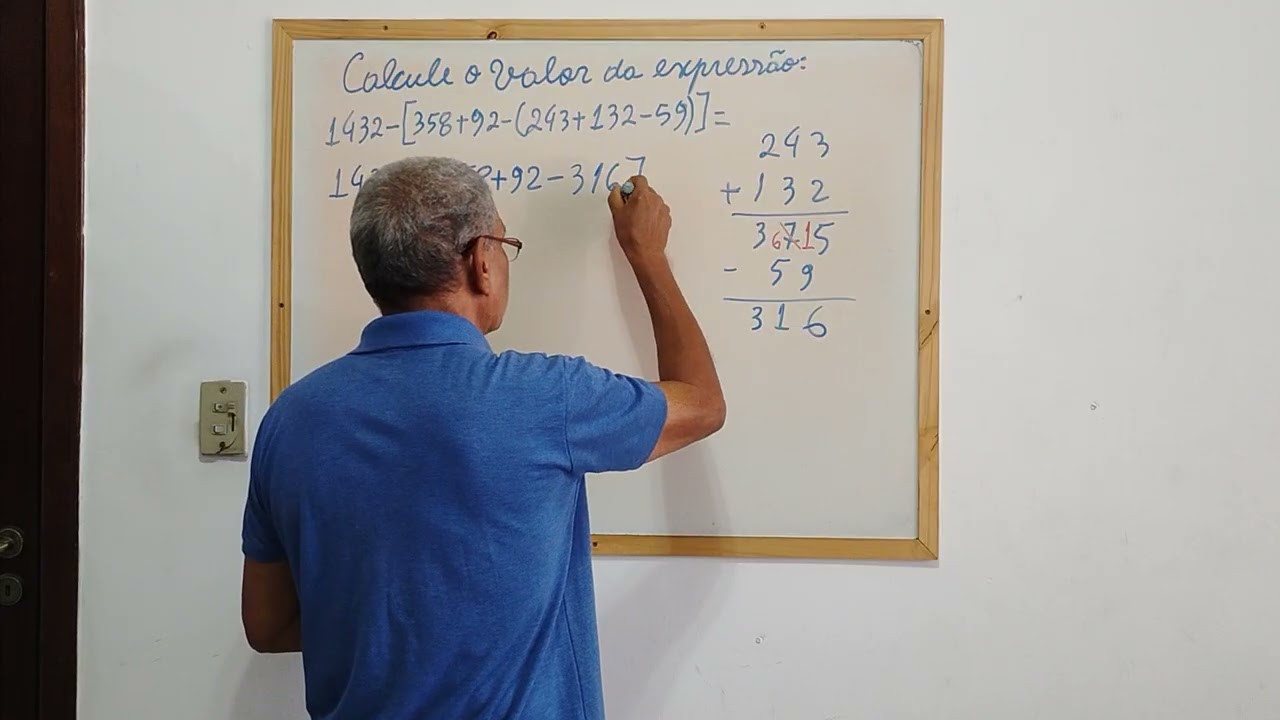 Calcule o valor da expressão:
1432-[358+92-(243+132-59)]=
+92-316]
243
+132
36715
- 59
316